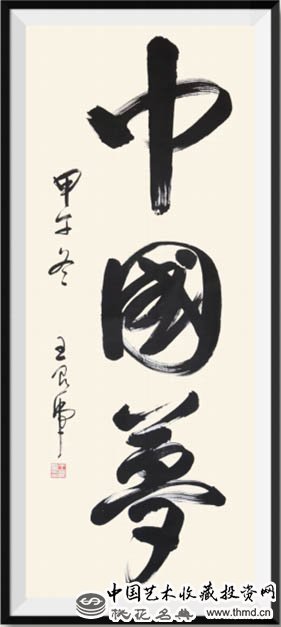 中國夢
甲午冬 王良虎
中国艺术收藏投资网
桃花名典 www.thmd.cn